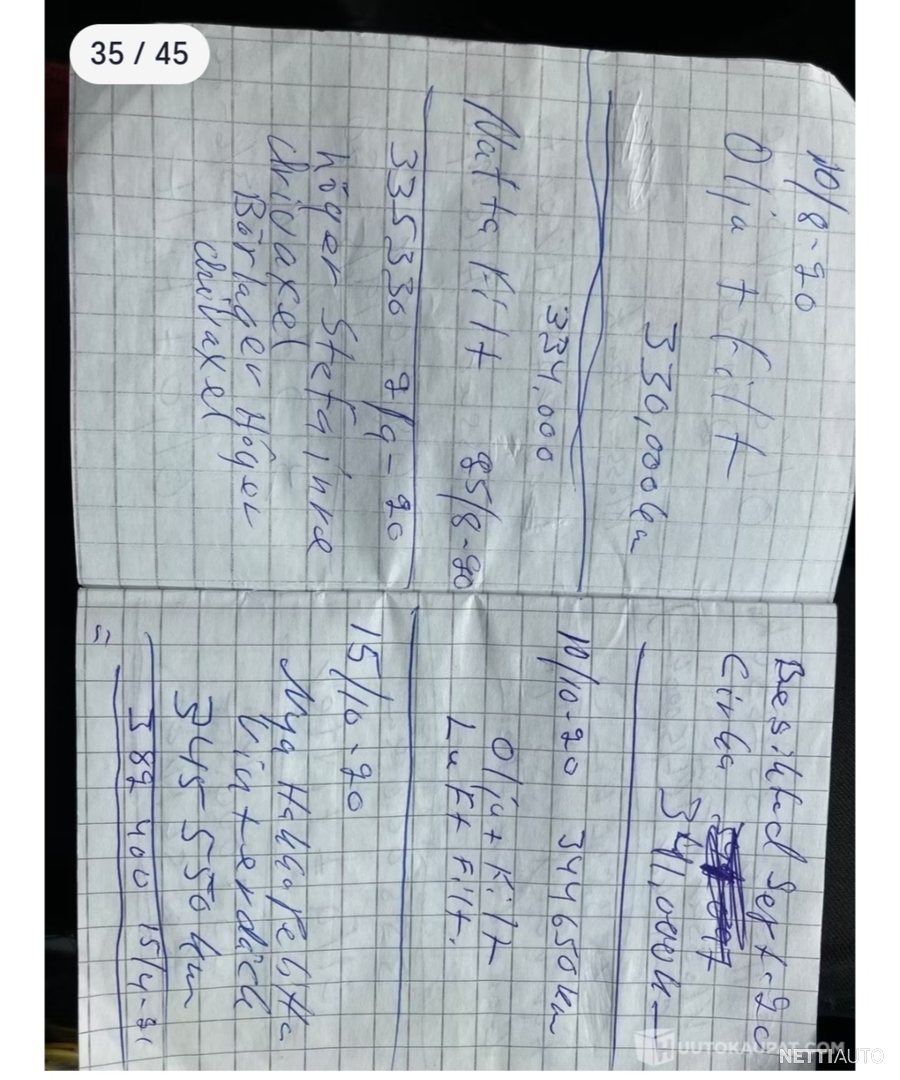 35 / 45
10/8-20
Olja + Filt
330,000km
334,000
Matta Filt 25/8-20
335330 7/9-20
Höger Stefa inre
drivaxel
Bärlager Höger
drivaxel
Besiktad Sept-20
Cirka
341,000k-
10/10-20 344650km
Olja + Filt
Luft Filt.
15/10-20
Nya Hakkapelitta
Vinterdäck
345 550 km
387 400 15/4-2
UUTOKAUPAT.COM
NETTIAUTO